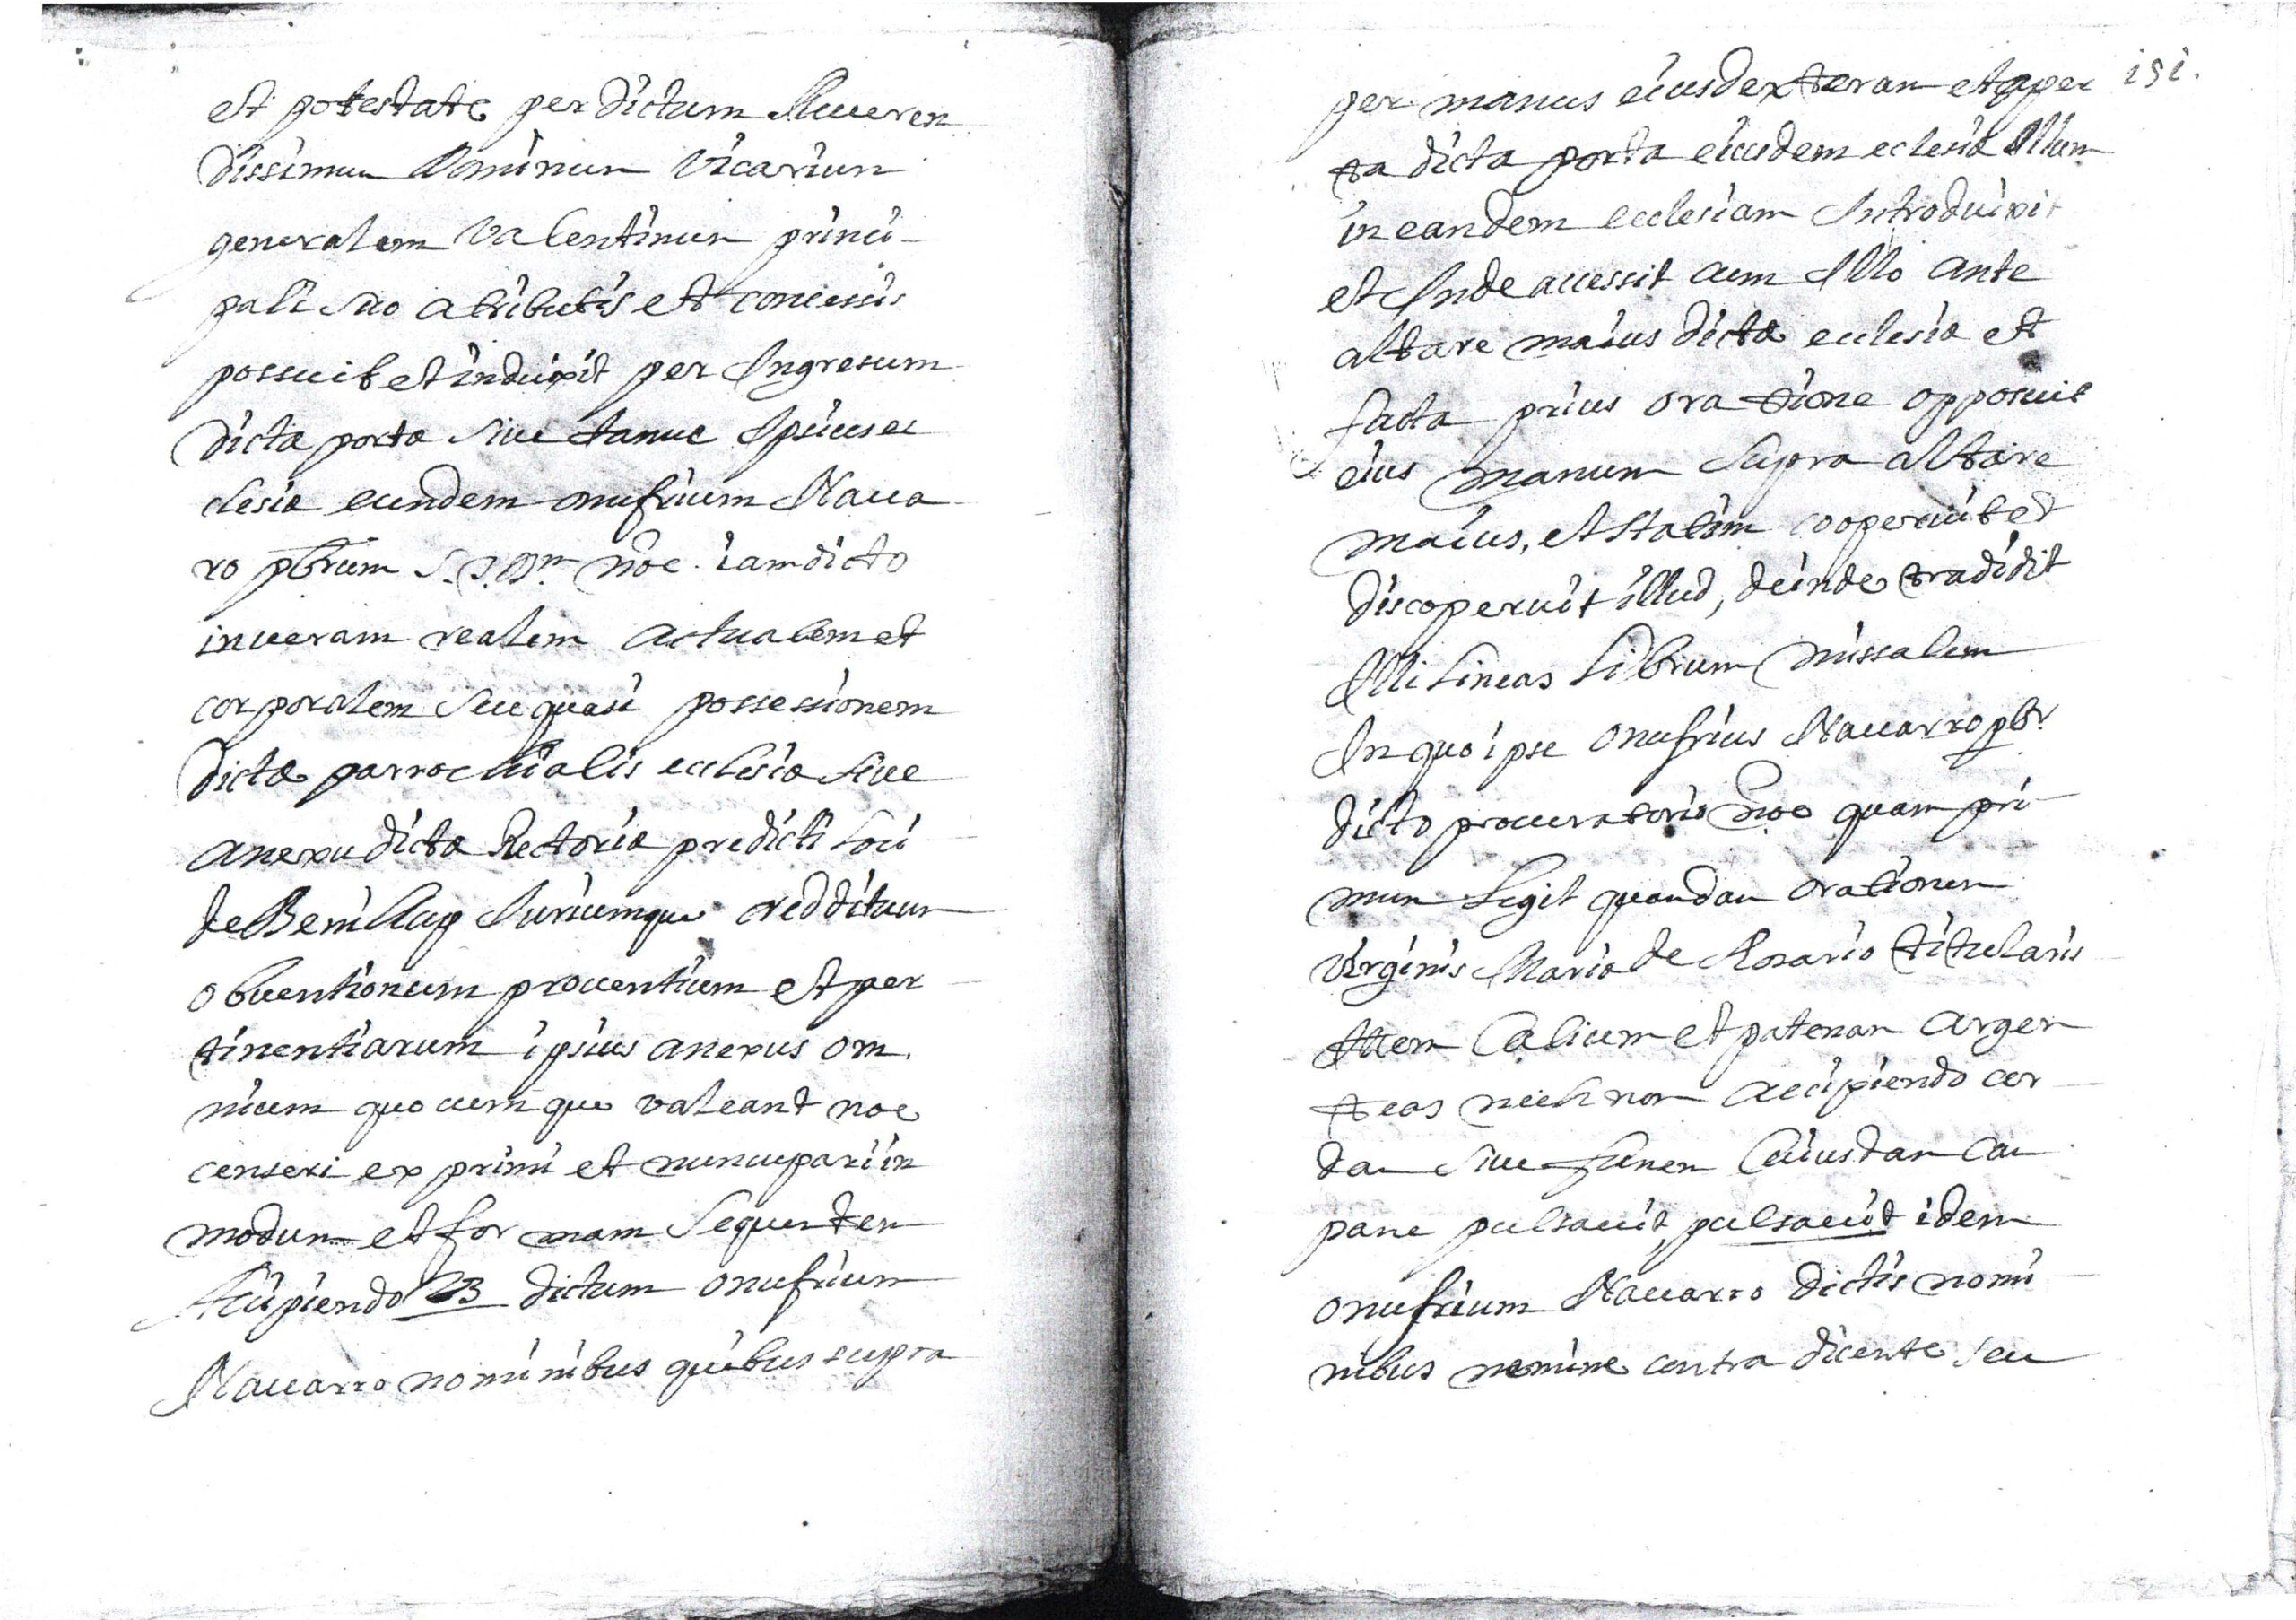 et potestate per dictum Reveren
dissimum Dominum Vicarium
generalem Valentinum princi-
pali suo atributis et concessis
possuit et induxit per Ingresum
dictæ portæ sive Ipsius ec
clesiæ eundem onufrium Nava
ro pbrum noe. iam dicto
in veram realem actualem et
corporalem seu quasi possessionem
dictæ parrochialis ecclesiæ sive
anexu dictæ Rectoriæ predicti Loci
de Benillup Iuriumque reddituum
obventionum proventium et per
tinentiarum ipsius anexus om.
nium quocumque valeant noe
censeri exprimi et nuncupari in
modum et formam sequentem
Acipiendo dictum onufrium
Navarro nominibus quibus supra
per manus eius dexteram et aper 151.
ta dicta porta eiusdem eclesiæ Illum
in eandem ecclesiam Introduixit
et Inde accessit cum Illo ante
altare maius dictæ ecclesiæ et
facta prius oratione opposuit
eius manum supra altare
maius, et statim cooperuit et
discoperuit illud, deinde tradidit
Illi Librum missalem
In quo ipse onufrius Navarro pbr.
dicto procuratorio noe quam pri
mum Legit quandam orationem
virginis Mariæ de Rosario titularis
Ittem Calicem et patenam argen
teas nech non accipiendo cor
dam sive funem Cuiusdam Cam
pane pulsavit, pulsavit idem
onufrium Navarro dictis nomi
nibus nemine contra dicente seu